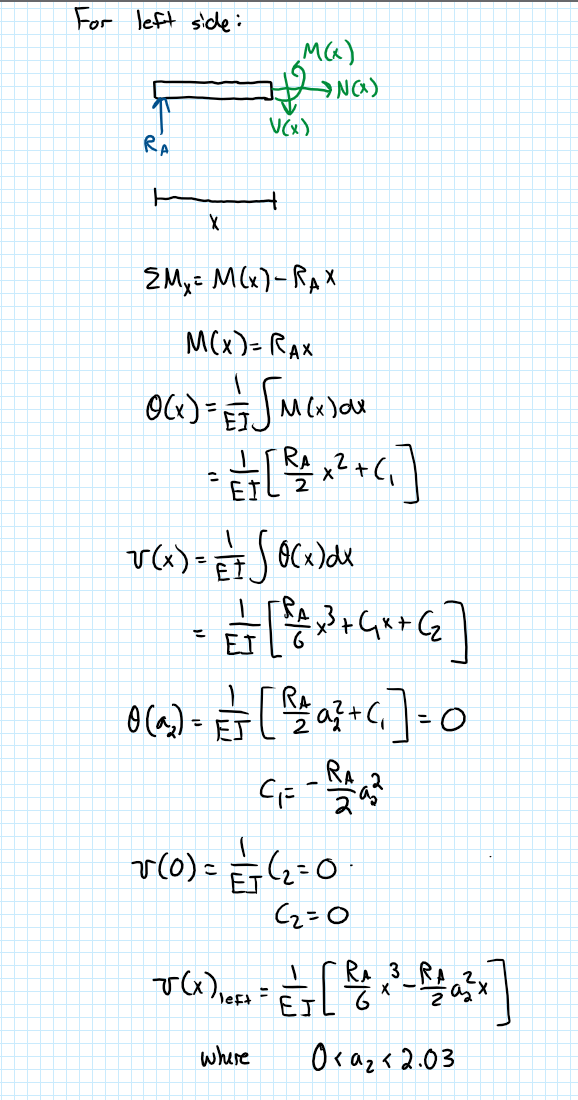 For left side:
M(x)
N(x)
V(x)
R_A
x
ΣM_x = M(x) - R_A x
M(x) = R_A x
θ(x) = 1/EI ∫ M(x)dx
= 1/EI [R_A/2 x² + C₁]
v(x) = 1/EI ∫ θ(x)dx
= 1/EI [R_A/6 x³ + C₁x + C₂]
θ(a₂) = 1/EI [R_A/2 a₂² + C₁] = 0
C₁ = - R_A/2 a₂²
v(0) = 1/EI C₂ = 0
C₂ = 0
v(x)_left = 1/EI [R_A/6 x³ - R_A/2 a₂² x]
where 0 < a₂ < 2.03